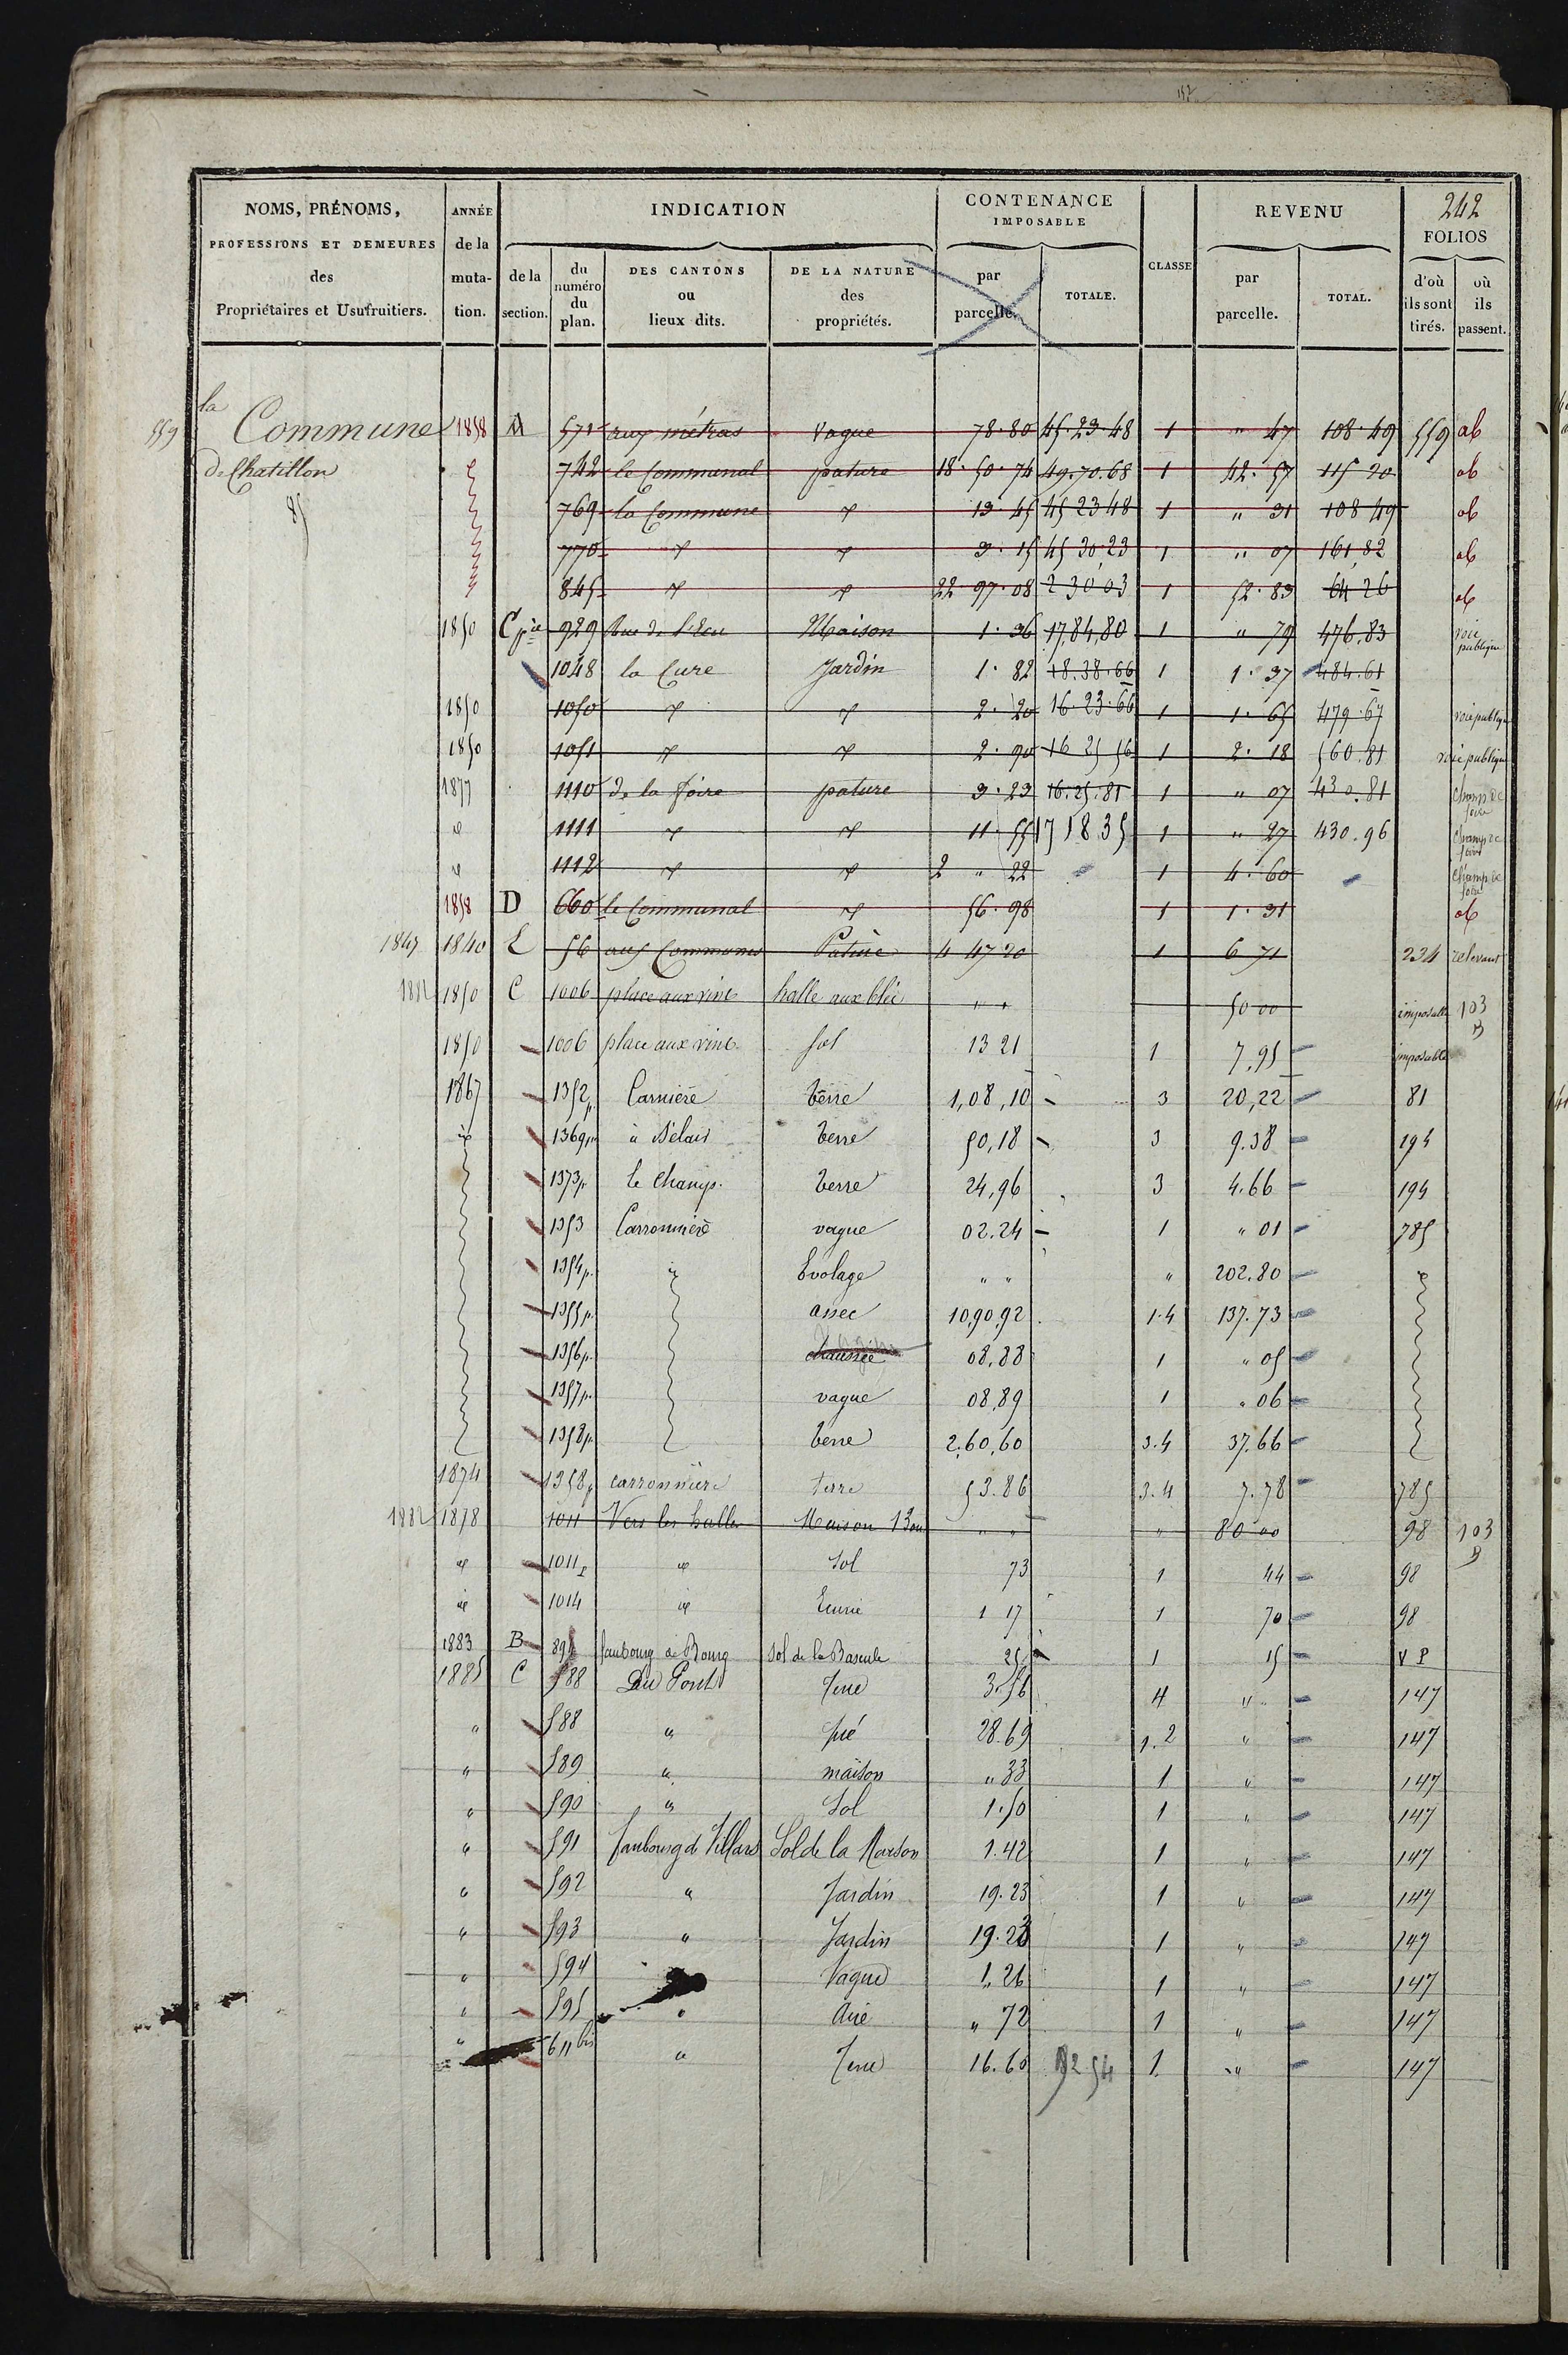 152
NOMS, PRÉNOMS, PROFESSIONS ET DEMEURES des Propriétaires et Usufruitiers.
ANNÉE de la mutation.
INDICATION
de la section.
du numéro du plan.
DES CANTONS ou lieux dits.
DE LA NATURE des propriétés.
CONTENANCE IMPOSABLE
par parcelle.
TOTALE.
CLASSE
REVENU
par parcelle.
TOTAL.
242
FOLIOS
d'où ils sont tirés.
où ils passent.
559 la Commune 1858 A 571 aux métras Vague 78.80 45.23.48 1 " 47 108.49 559 ab
de Chatillon 742 le Communal pature 18.50.74 49.70.68 1 42.57 115 20 ab
769 la Commune d° 13.45 45 23 48 1 " 31 108 49 ab
770 d° d° 3.15 45 30.23 1 " 07 161,82 ab
845 d° d° 22 97.08 2 30 03 1 52.83 64 26 ab
1850 C 929 Rue de l'Ecu Maison 1.36 17,84,80 1 " 79 476.83 voie publique
1048 la Cure Jardin 1.82 18.38.66 1 1.37 484.61
1850 1050 d° d° 2.20 16.23.66 1 1.65 479.67 voie publique
1850 1051 d° d° 2.90 16 25 56 1 2.18 560.81 voie publique
1877 1110 de la foire pature 3.23 16.25.81 1 " 07 430.81 champ de foire
d° 1111 d° d° 11.55 17 18 35 1 " 27 430.96 champ de foire
d° 1112 d° d° 2 " 22 1 4.60 champ de foire
1858 D 660 le Communal d° 56.98 1 1.31 ab
1847 1840 E 56 aux Communes Pature 4 47 20 1 6 71 234
1882 1850 C 1006 place aux vins halle aux blés " " 50 00 imposable 103
1850 1006 place aux vins Sol 13 21 1 7,95 imposable
1867 1352p Carnière terre 1,08,10 3 20,22 81
id 1369p à Bélair terre 50,18 3 9.38 194
1373p le Champ. terre 24,96 3 4.66 194
1353 Carronnière vague 02.24 1 " 01 785
1354p. id Evolage " " " 202.80 id
1355p. assec 10,90,92 1.4 137.73
1356p. chaussée 08,88 1 " 05
1357p. vague 08,89 1 " 06
1358p. terre 2,60,60 3.4 37.66
1874 1358p carronnière terre 53.86 3.4 7.78 785
1882 1878 1011 Vers les halles Maison 13 ou " " " 80 00 98 103
id 1011p id Sol 73 1 44 98
id 1014 id Ecurie 1 17 1 70 98
1883 B 895 faubourg de Bourg Sol de la Bascule 25 1 15 V P
1885 C 588 Du Pont Terre 3.56 4 " 147
" 588 " pré 28.69 1.2 " 147
" 589 " maison " 33 1 " 147
" 590 " Sol 1.50 1 " 147
" 591 Faubourg de Villars Sol de la Maison 1.42 1 " 147
" 592 " Jardin 19.23 1 " 147
" 593 " Jardin 19.23 1 " 147
" 594 Vague 1.26 1 " 147
" 595 " Aire " 72 1 " 147
" 611 bis " Terre 16.60 1 " 147